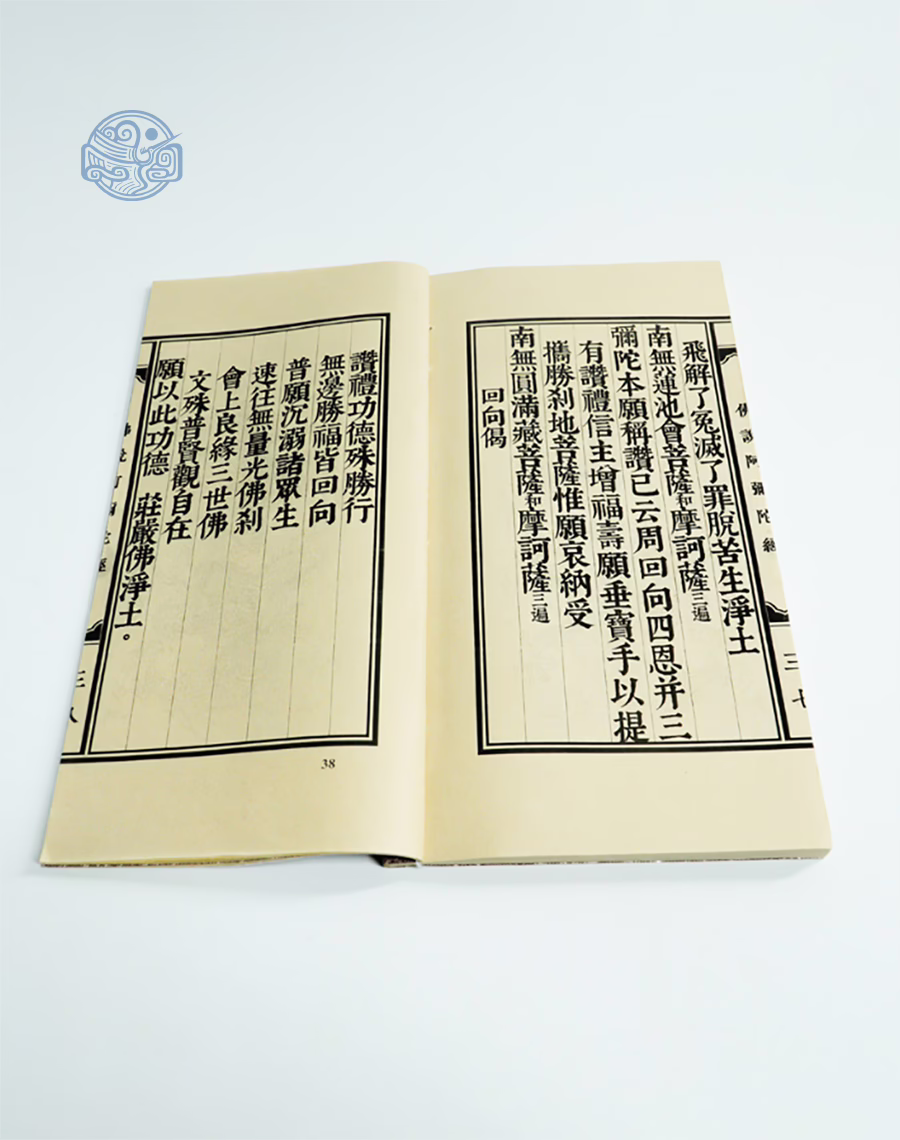 佛說阿彌陀經
三七
飛解了冤滅了罪脫苦生淨土
南無蓮池會菩薩和摩訶薩三遍
彌陀本願稱讚已云周回向四恩并三
有讚禮信主增福壽願垂寶手以提
攜勝刹地菩薩惟願哀納受
南無圓滿藏菩薩和摩訶薩三遍
回向偈
讚禮功德殊勝行
無邊勝福皆回向
普願沉溺諸眾生
速往無量光佛刹
會上良緣三世佛
文殊普賢觀自在
願以此功德 莊嚴佛淨土。
38